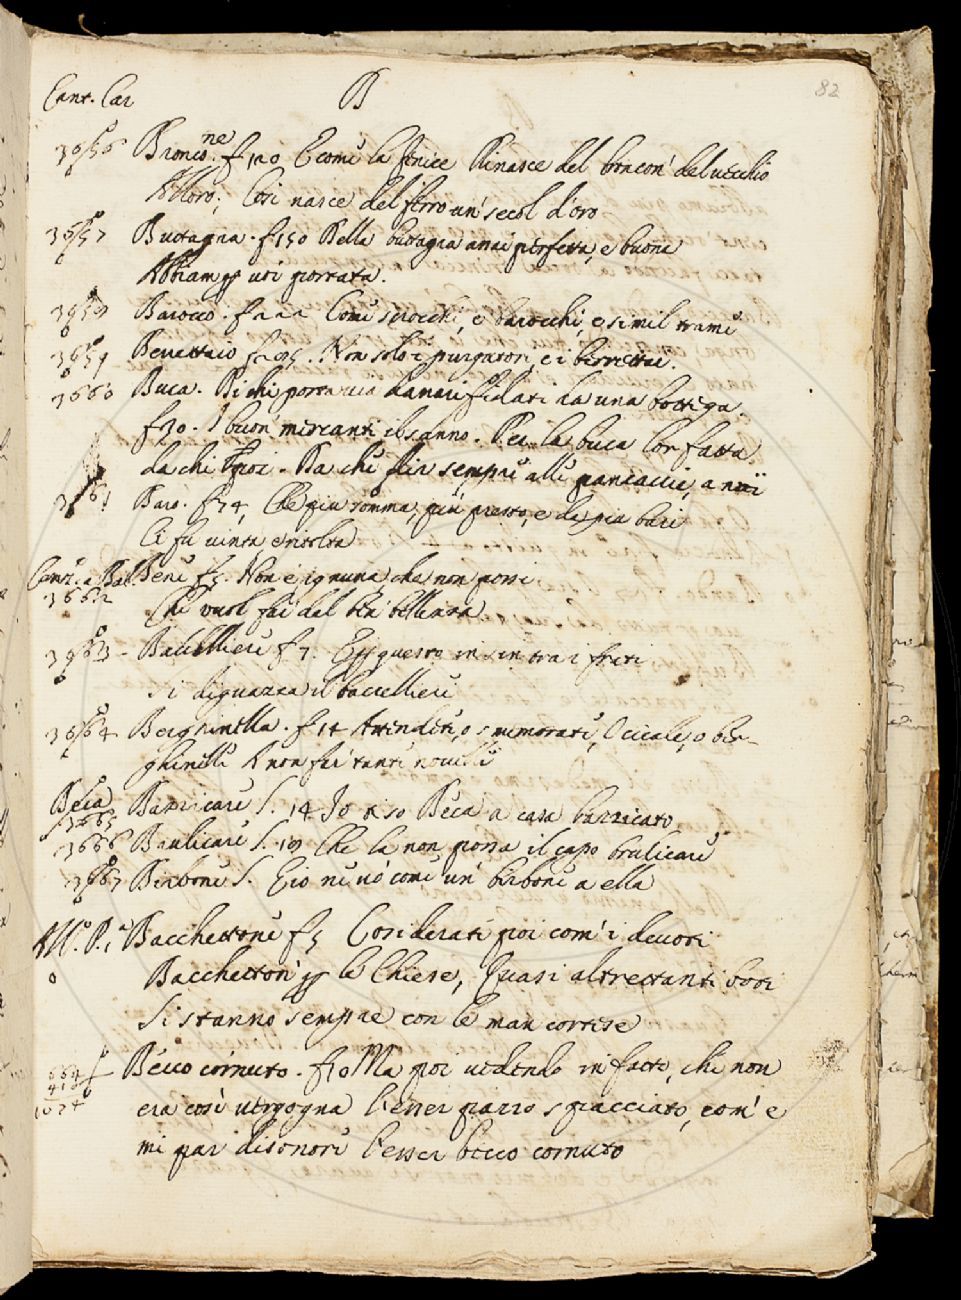 Cant. Car B 82
3656 Broncone. f 120 E come la fenice Rinasce del broncon' del vecchio
Alloro; Così nasce del ferro un' secol d'oro
3657 Buttagna. f 150 Bella buttagna assai perfetta, e buona
Abbiam p usi porrata.
3658 Barocco. f Come scrocchi, e barocchi, e simil trame
3659 Berrettaio f 295. Non solo i purgatori, e i berrettai.
3660 Buca. Di chi porta danari fidati da una bottega.
f 70. I buon' mercanti il sanno. Per la buca lor fatta
da chi poi. Da chi sta sempre alle pancaccie, a noi
3661 Baro. f 74. Che più romma, più presto, e da più bari
Ci fu vinta e tolta
Canz. a Bal. Bene f 5. Non è ignuna che non possi
3662 Chi vuol far del ben bellezza
3663 Baccelliere f 7. E p questo in sin tra i frati
Si diguazza il baccelliere
3664 Berghinella. f 14 Attendete, o smemorate, O cicale, o ber-
ghinelle A non far tante novelle
Beca Barricare S. 14 Io ho so Beca a casa barricato
3665
3666 Brulicare S. 19 Che la non possa il capo brulicare
3667 Birbone S. Eio ne vò come un' birbone a ella
All. P. 1ª Bacchettone f 5 Considerati poi com' i devoti
0 Bacchetton' p le Chiese, Quasi altrettanti boti
Si stanno sempre con le man cortese
664 Becco cornuto. f 70 Ma poi vedendo in fatto, che non
410
1074 era così vergogna l'esser pazzo spacciato, com' e
mi par disonore l'esser becco cornuto